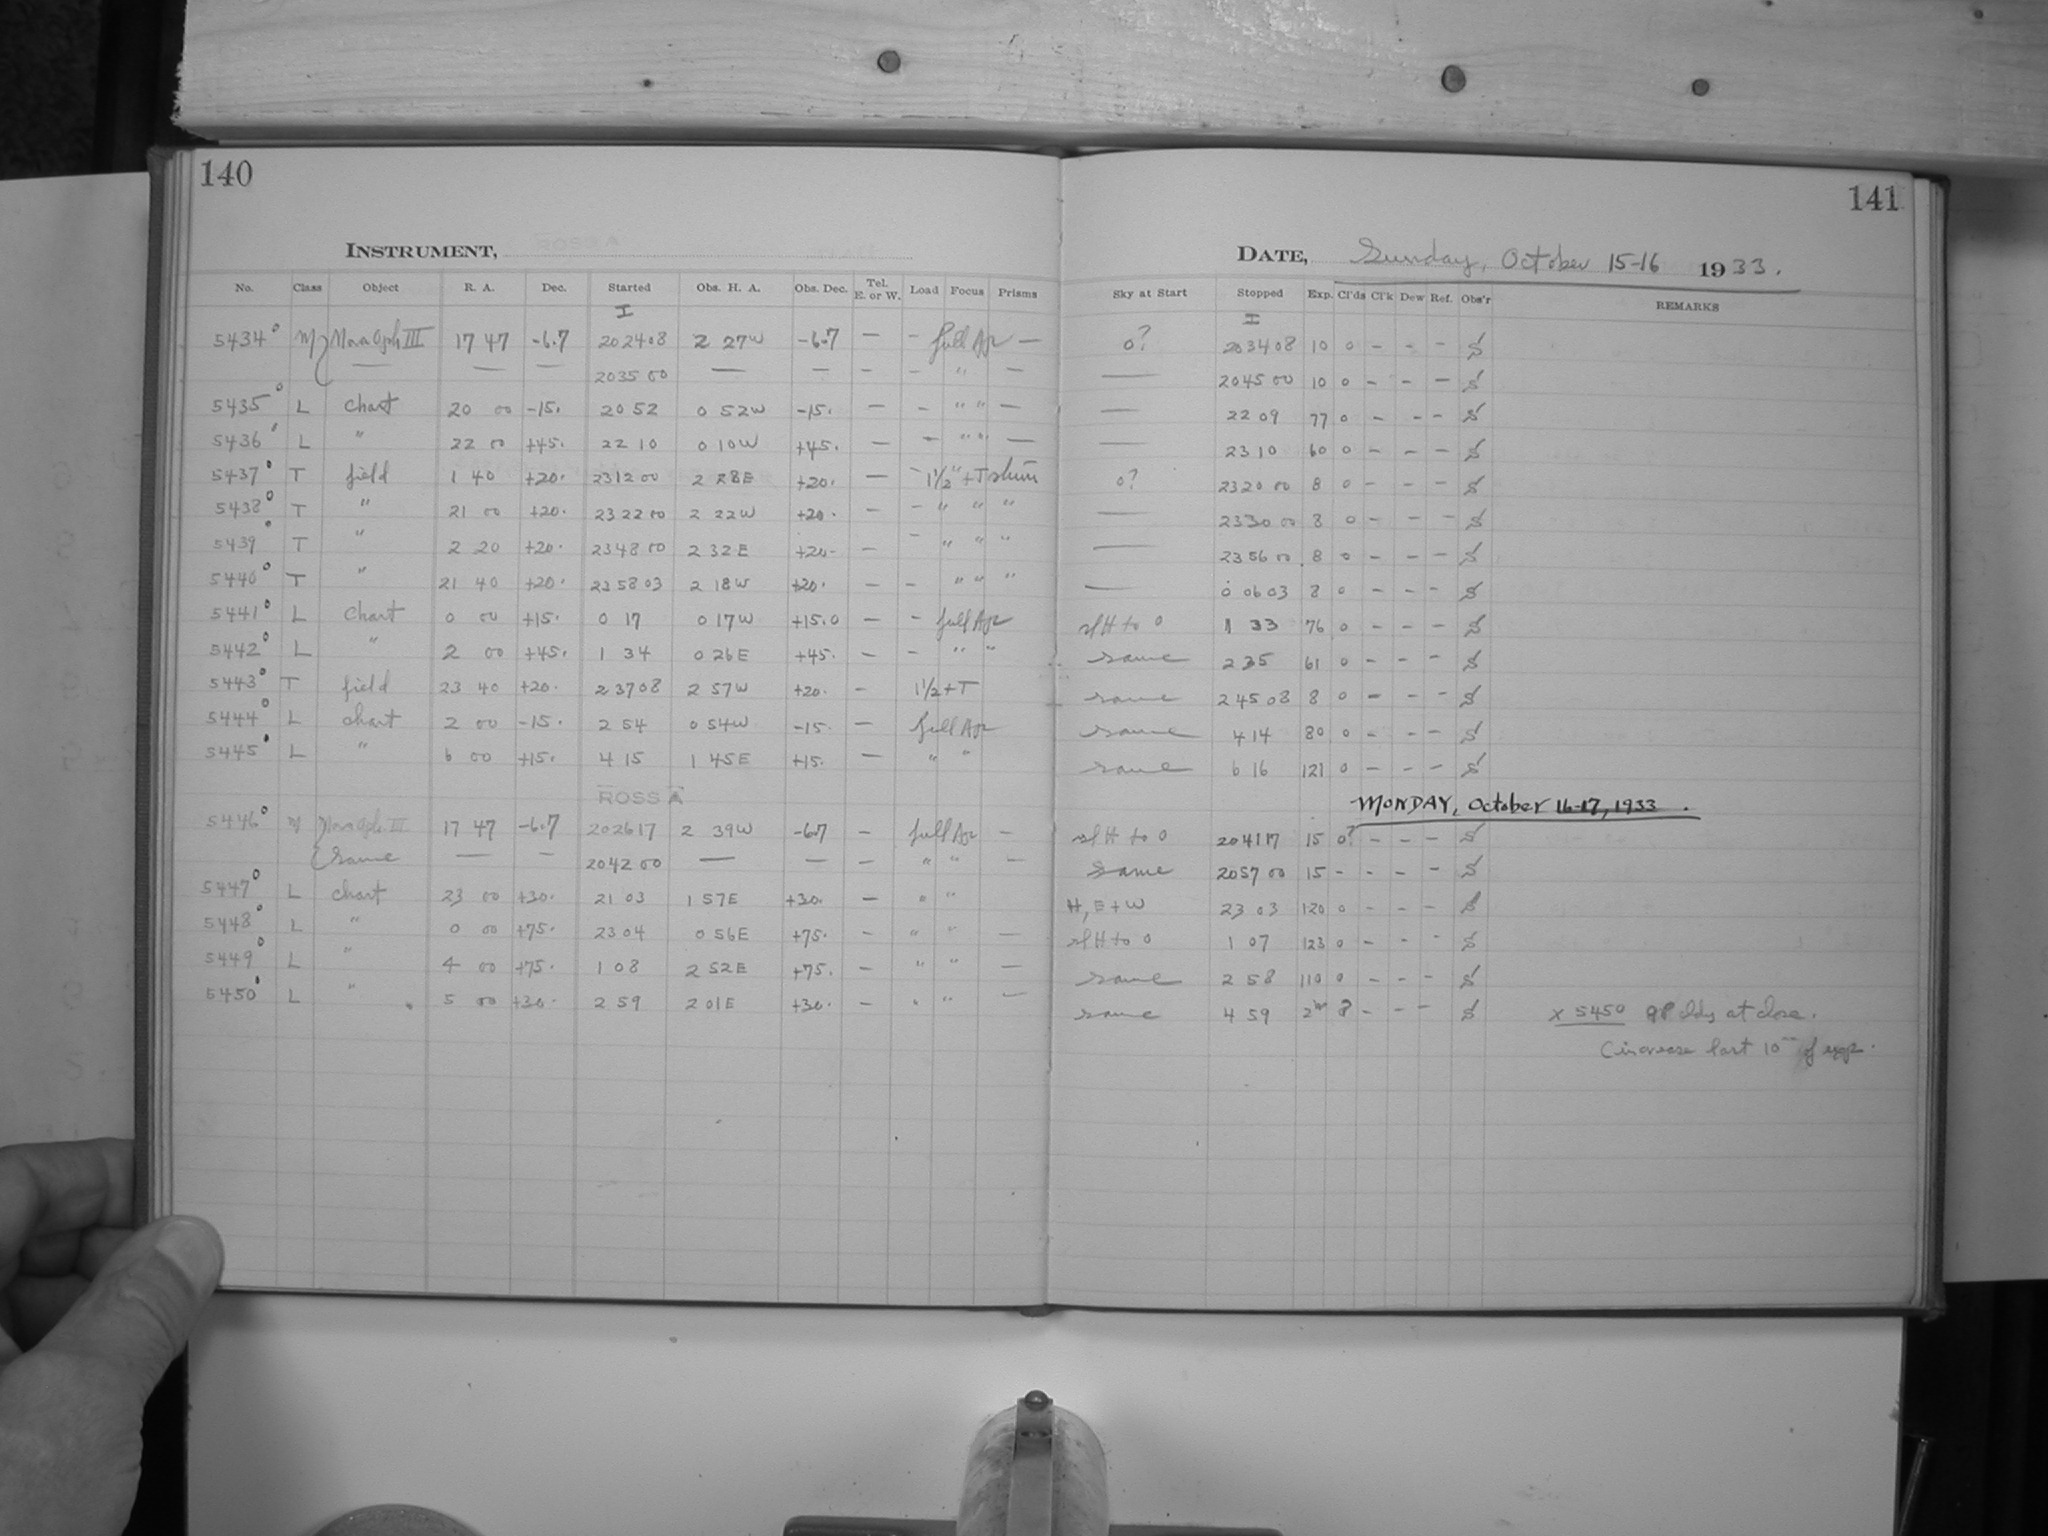 140
INSTRUMENT,
No. Class Object R. A. Dec. Started Obs. H. A. Obs. Dec. Tel. E. or W. Load Focus Prisms
I
5434° M Nova Oph III 17 47 -6.7 20 24 08 2 27W -6.7 — - full Apr —
— — — 20 35 00 — — — - " —
5435° L chart 20 00 -15. 20 52 0 52W -15. — - " " —
5436° L " 22 00 +45. 22 10 0 10W +45. — - " " —
5437° T field 1 40 +20. 23 12 00 2 28E +20. — - 1½" + T
5438° T " 21 00 +20. 23 22 00 2 22W +20. — - " " "
5439° T " 2 20 +20. 23 48 00 2 32E +20. — - " " "
5440° T " 21 40 +20. 23 58 03 2 18W +20. — - " " "
5441° L Chart 0 00 +15. 0 17 0 17W +15.0 — - full Apr
5442° L " 2 00 +45. 1 34 0 26E +45. — - " "
5443° T field 23 40 +20. 2 37 08 2 57W +20. - 1½ + T
5444° L chart 2 00 -15. 2 54 0 54W -15. — full Apr
5445° L " 6 00 +15. 4 15 1 45E +15. — " "
ROSS A
5446° M Nova Oph III 17 47 -6.7 20 26 17 2 39W -6.7 - full Apr -
same — — 20 42 00 — — — " " —
5447° L chart 23 00 +30. 21 03 1 57E +30. — " "
5448° L " 0 00 +75. 23 04 0 56E +75. - " " —
5449° L " 4 00 +75. 1 08 2 52E +75. - " " —
5450° L " 5 00 +30. 2 59 2 01E +30. - " " —
141
DATE, Sunday, October 15-16 1933.
Sky at Start Stopped Exp. Cl'ds Cl'k Dew Ref. Obs'r REMARKS
I
0? 20 34 08 10 0 - - - S
— 20 45 00 10 0 - - - S
— 22 09 77 0 - - - S
— 23 10 60 0 - - - S
0? 23 20 00 8 0 - - - S
— 23 30 00 8 0 - - - S
— 23 56 00 8 0 - - - S
— 0 06 03 8 0 - - - S
sl H to 0 1 33 76 0 - - - S
same 2 35 61 0 - - - S
same 2 45 08 8 0 - - - S
same 4 14 80 0 - - - S
same 6 16 121 0 - - - S
MONDAY, October 16-17, 1933.
sl H to 0 20 41 17 15 0? - - - S
same 20 57 00 15 - - - - S
H, E + W 23 03 120 0 - - - S
sl H to 0 1 07 123 0 - - - S
same 2 58 110 0 - - - S
same 4 59 - - - S x 5450 at close.
(increase last 10 of exp.